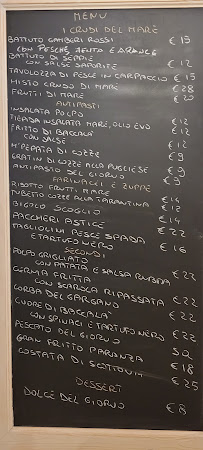 MENU
I CRUDI DEL MARE
BATTUTO GAMBERI ROSSI € 15
CON PESCHE, MENTA E ARANCE
BATTUTO DI SEPPIE € 12
CON SALSE SAPORITE
TAVOLOZZA DI PESCE IN CARPACCIO € 15
MISTO CRUDO DI MARE € 28
FRUTTI DI MARE € 20
ANTIPASTI
INSALATA POLPO € 12
TIEPIDA INSALATA MARE, OLIO EVO € 12
FRITTO DI BACCALA' € 12
CON SALSE
M'PEPATA DI COZZE € 9
GRATIN DI COZZE ALLA PUGLIESE € 9
ANTIPASTO DEL GIORNO € 9
FARINACEI E ZUPPE
RISOTTO FRUTTI MARE € 14
TUBETTO COZZE ALLA TARANTINA € 12
SCOGLIO € 14
PACCHERI ASTICE € 22
TAGLIOLINI PESCE SPADA € 16
E TARTUFO NERO
SECONDI
POLPO GRIGLIATO € 22
CON PATATA E SALSA RUBRA
CERNIA FRITTA € 22
CON SCAROLA RIPASSATA
DEL GARGANO € 22
CUORE DI BACCALA' € 22
CON SPINACI E TARTUFO NERO
PESCATO DEL GIORNO S.Q.
GRAN FRITTO PARANZA € 18
COSTATA DI SCOTTONA € 25
DESSERT
DOLCE DEL GIORNO € 8